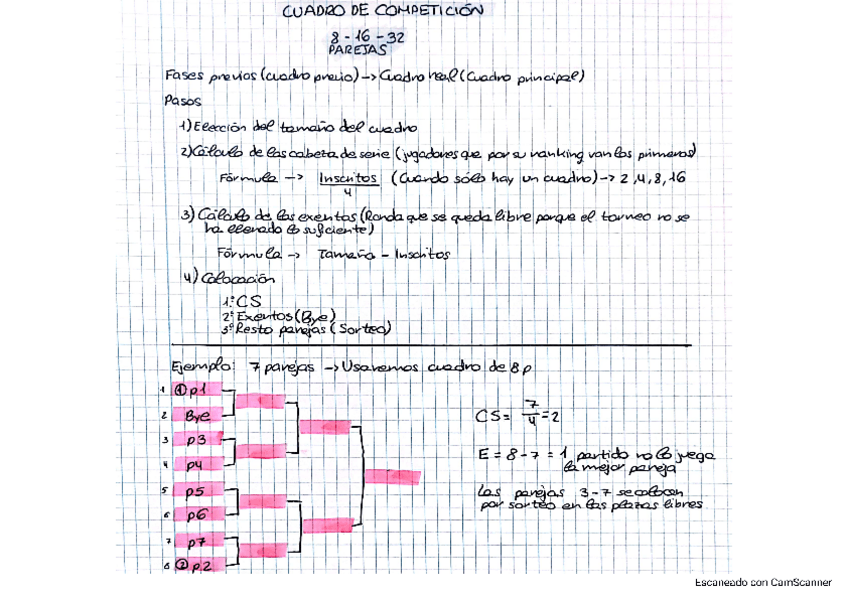 CUADRO DE COMPETICIÓN
8 - 16 - 32
PAREJAS
Fases previas (cuadro previo) -> Cuadro real (Cuadro principal)
Pasos
1) Elección del tamaño del cuadro
2) Cálculo de las cabeza de serie (jugadores que por su ranking van los primeros)
Fórmula -> Inscritos / 4 (Cuando sólo hay un cuadro) -> 2, 4, 8, 16
3) Cálculo de los exentos (Ronda que se queda libre porque el torneo no se
ha llenado lo suficiente)
Fórmula -> Tamaño - Inscritos
4) Colocación
1º CS
2º Exentos (Bye)
3º Resto parejas (Sorteo)
Ejemplo: 7 parejas -> Usaremos cuadro de 8 p
1 ① p1
2 Bye
3 p3
4 p4
5 p5
6 p6
7 p7
8 ② p2
CS = 7/4 = 2
E = 8 - 7 = 1 partido no lo juega
la mejor pareja
Las parejas 3-7 se colocan
por sorteo en las plazas libres
Escaneado con CamScanner